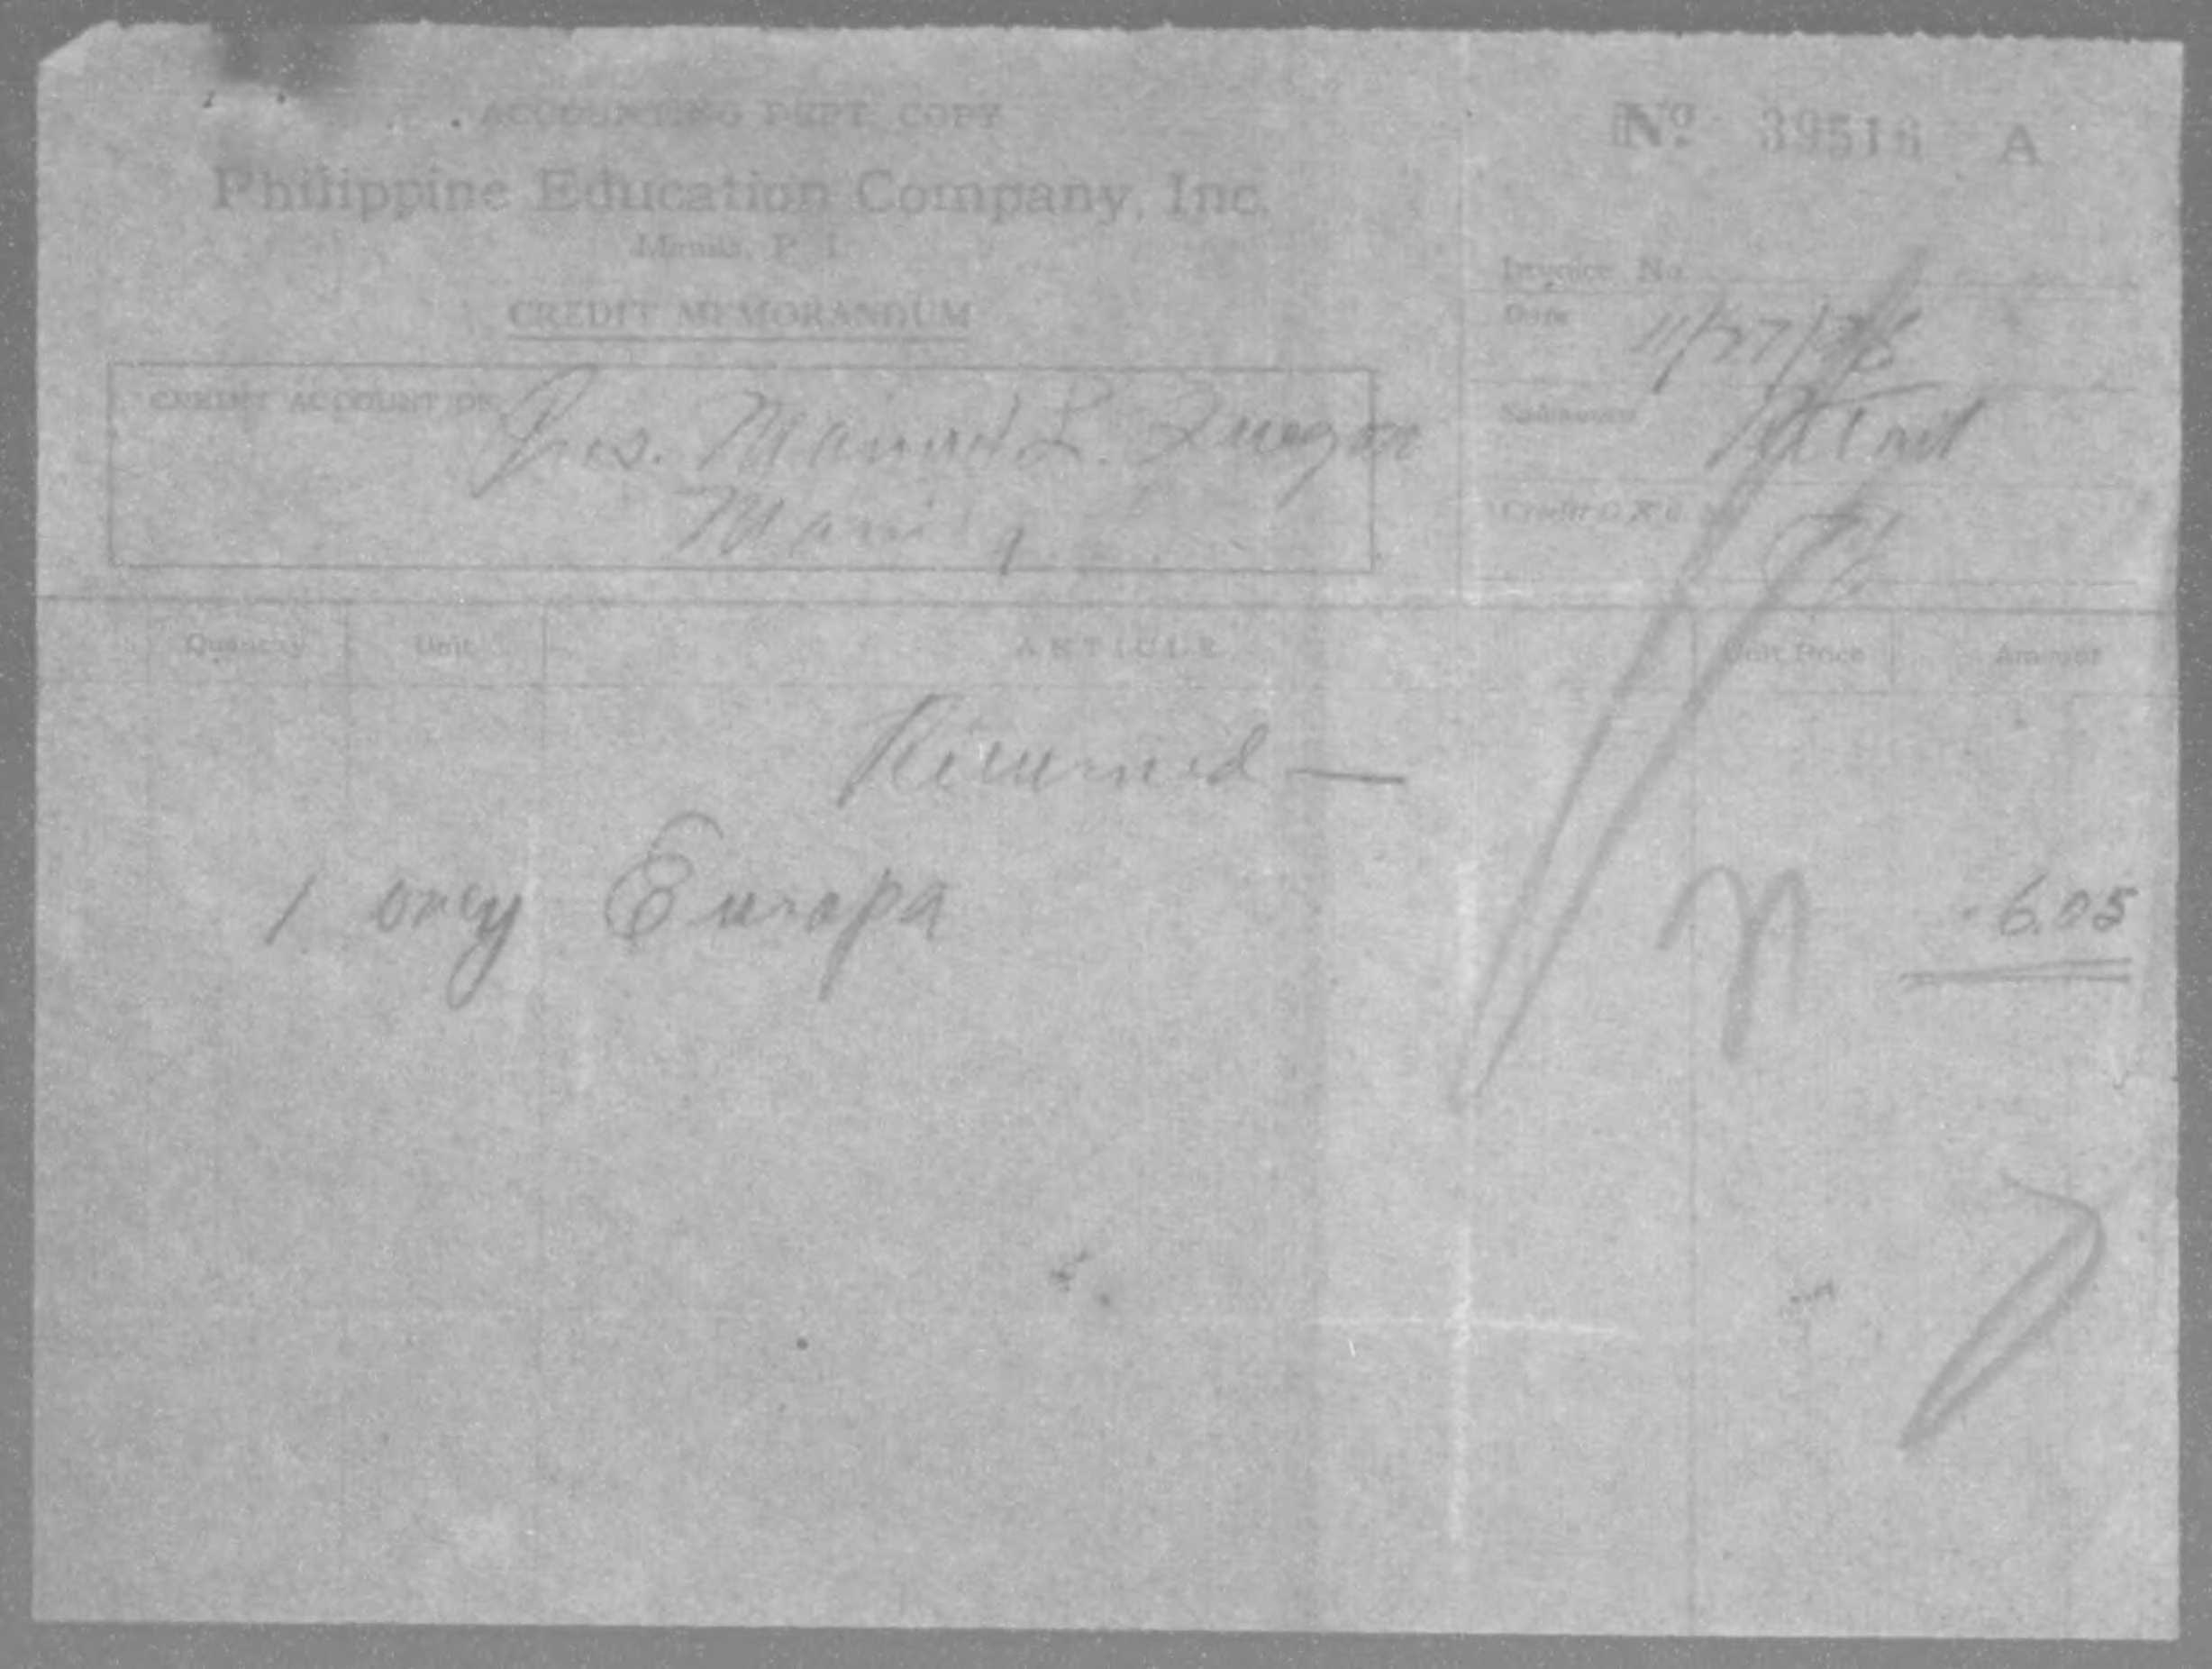 ACCOUNTING DEPT. COPY
Nº 39516 A
Philippine Education Company, Inc.
Manila, P. I.
CREDIT MEMORANDUM
Invoice No.
Date 11/27/36
CREDIT ACCOUNT OF Pres. Manuel L. Quezon
Manila
Salesman
Credit O.K'd.
Quantity Unit ARTICLE Unit Price Amount
Returned —
1 only Europa 6.05